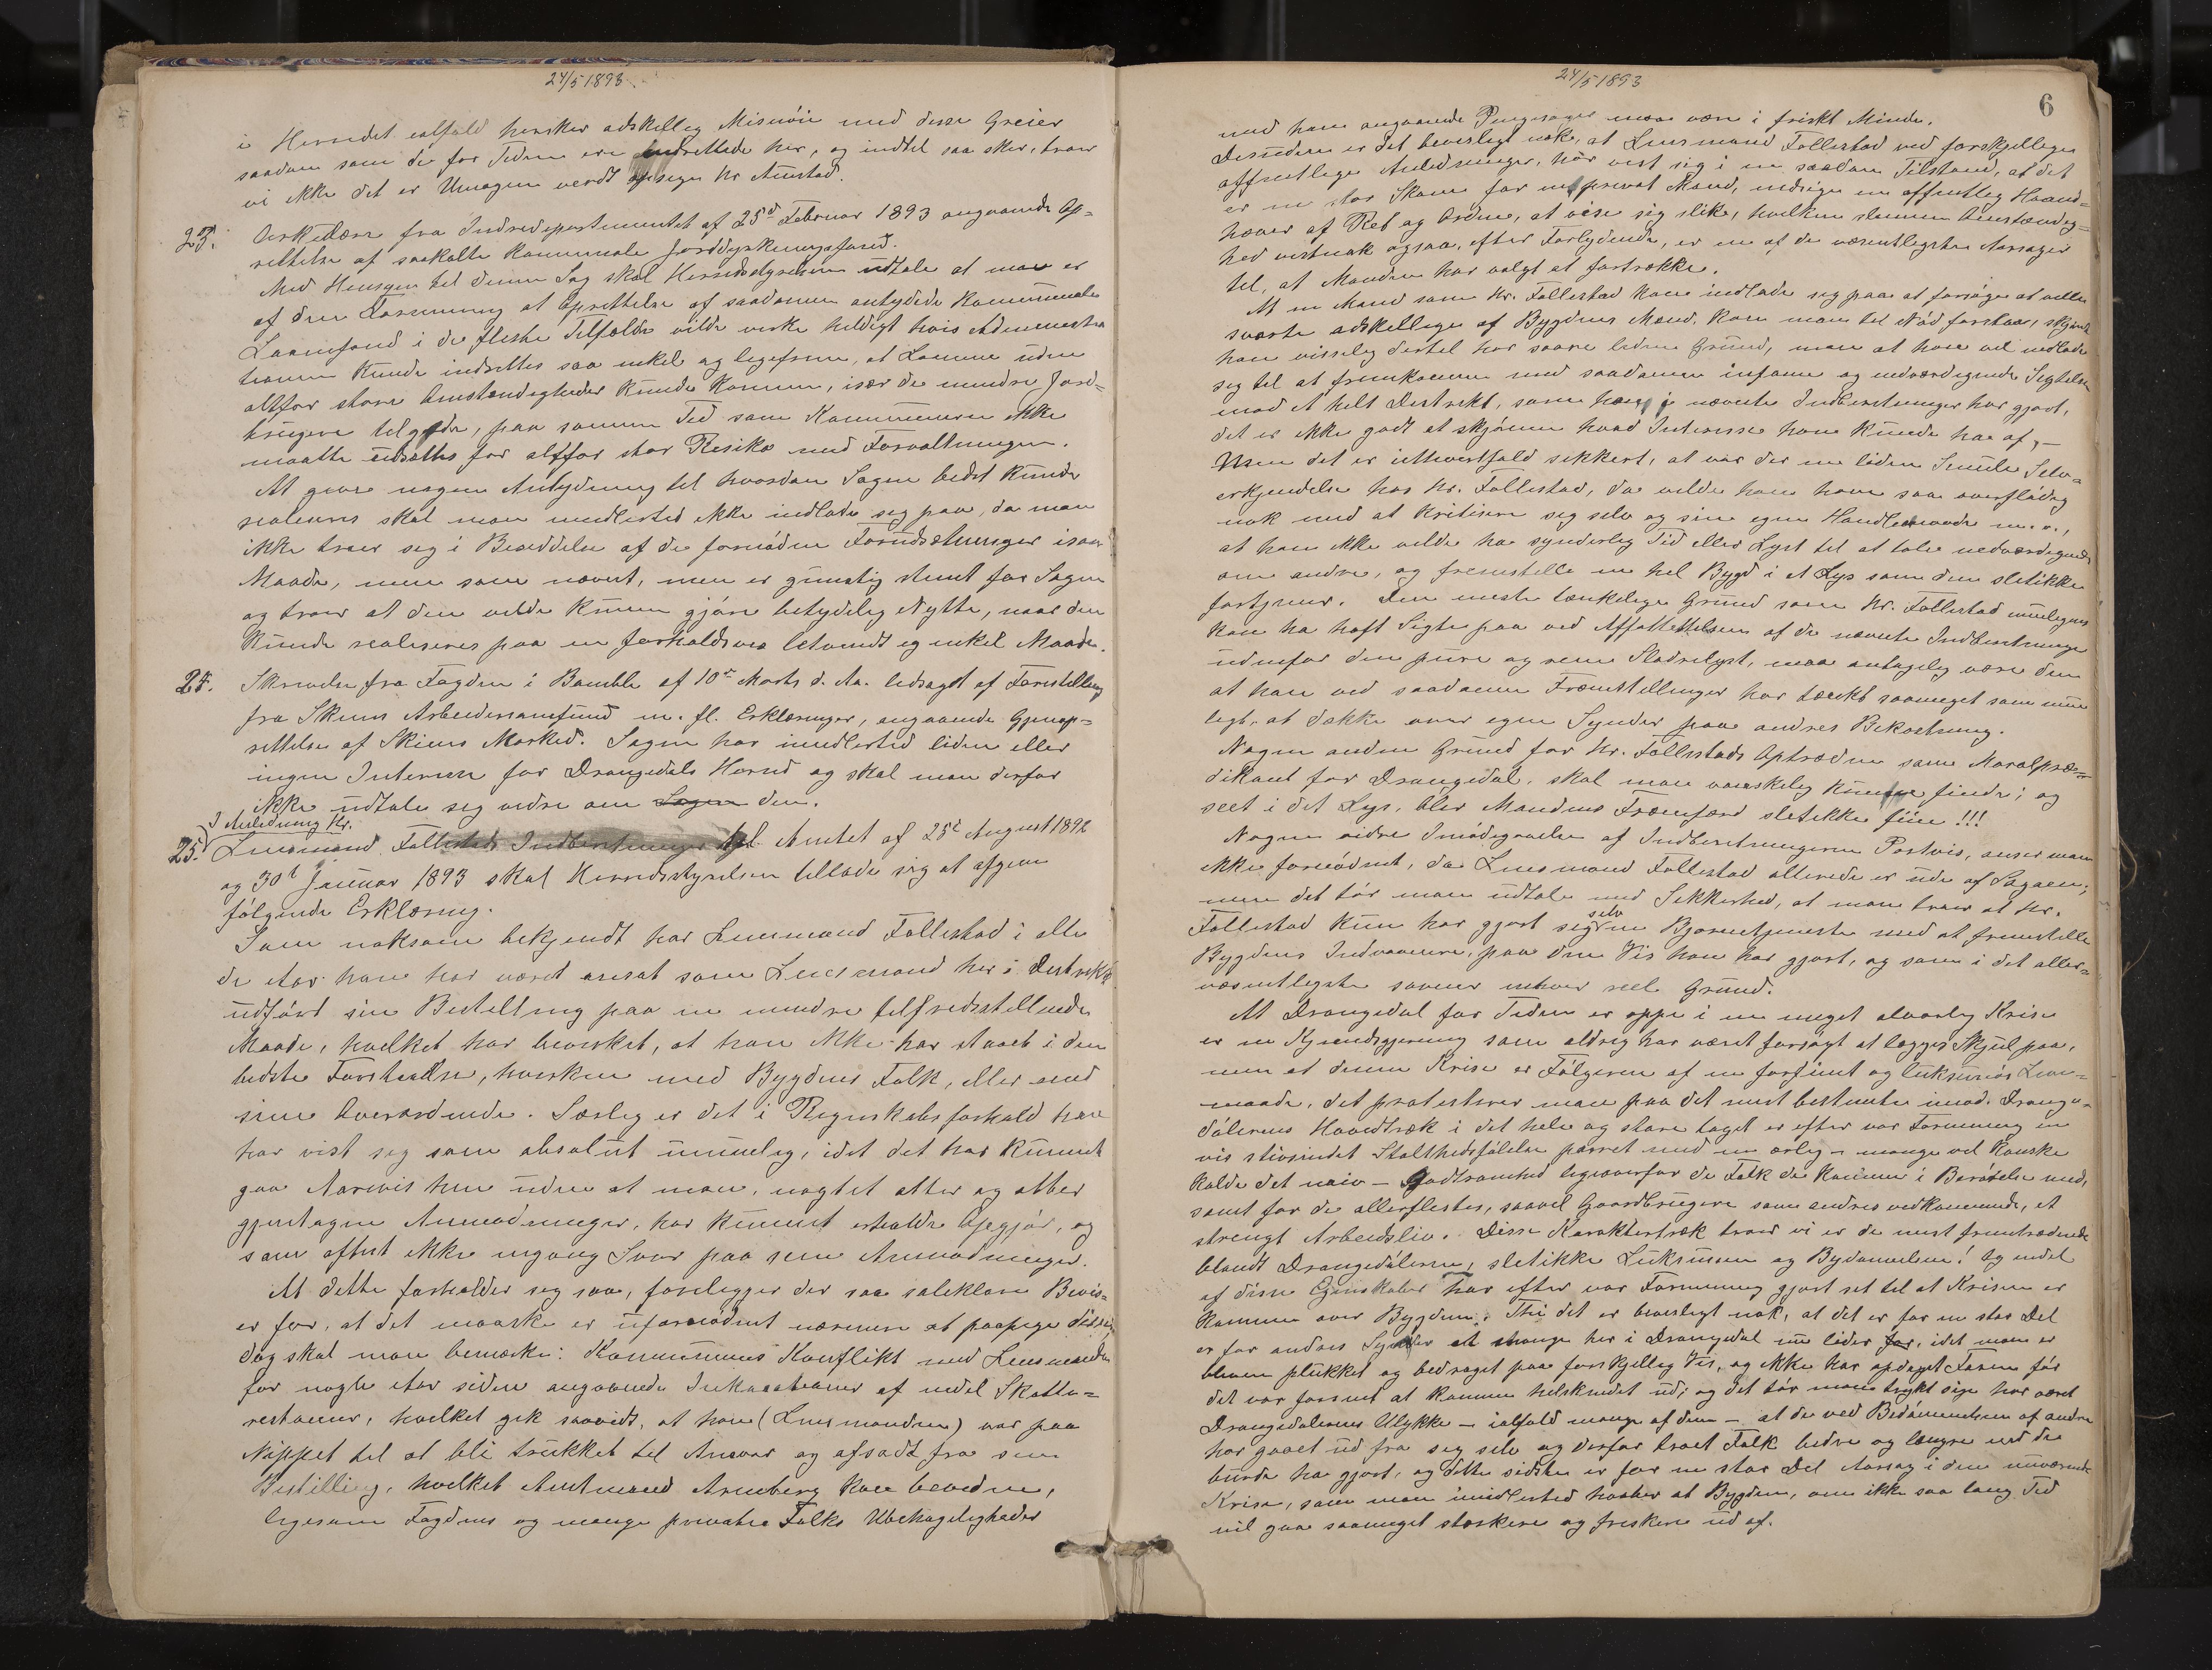 24/5 1893
i Herredet ialfald hersker adskillig Misnöie med disse Greier
saadan som de for Tiden ere indrettede her, og indtil saa sker, troer
vi ikke det er Umagen verdt opsige Hr Aunstad.
23. Cirkulære fra Indredepartementet af 25d Februar 1893 angaaende Op=
rettelse af saakalte kommunale Jorddyrkningsfond.
Med Hensyn til denne Sag skal Herredsstyrelsen udtale at man er
af den Formening at Oprettelse af saadanne antydede kommunale
Laanefond i de fleste Tilfælde vilde virke heldigt hvis Adminnistra
tionen kunde indrettes saa enkel og ligefrem, at Laanene uden
altfor store Omstændigheder kunde komme, især de mindre Jord=
brugere tilgode, paa samme Tid som Kommunerne ikke
maatte udsættes for altfor stor Risiko med Forvaltningen.
At give nogen Antydning til hvordan Sagen bedst kunde
realiseres skal man imidlertid ikke indlade sig paa, da man
ikke troer sig i Besiddelse af de fornödne Forudsætninger isaa
Maade, men som nævnt, man er gunstig stemt for Sagen
og troer at den vilde kunne gjöre betydelig Nytte, naar den
kunde realiseres paa en forholdsvis letvendt og enkel Maade.
24. Skrivelse fra Fogden i Bamble af 10de Marts d. Aa. ledsaget af Forestilling
fra Skiens Arbeidersamfund m. fl. Erklæringer, angaaende Gjenop=
rettelse af Skiens Marked. Sagen har imidlertid liden eller
ingen Interesse for Drangedals Herred og skal man derfor
ikke udtale sig vidre om Sagen den.
I Anledning Hr.
25. Lensmand Follestads Indberetninger til Amtet af 25de August 1892
og 30te Januar 1893 skal Herredsstyrelsen tillade sig at afgive
fölgende Erklæring.
Som noksom bekjendt har Lensmand Follestad i alle
de Aar han har været ansat som Lensmand her i Distriktet
udfört sin Bestilling paa en mindre tilfredsstillende
Maade, hvilket har bevirket, at han ikke har staaet i den
bedste Forstaaelse, hverken med Bygdens Folk, eller med
sine Overordnede. Særlig er det i Regnskabsforhold han
har vist sig som absolut umulig, idet det har kunnet
gaa Aarevis hen uden at man, uagtet atter og atter
gjentagne Anmodninger, har kunnet erholde Opgjör, og
som oftest ikke engang Svar paa sine Anmodninger.
At dette forholder sig saa, foreligger der saa soleklare Bevis=
er for, at det maaske er ufornödent nærmere at paapege disse,
dog skal man bemærke: Kommunens Konflikt med Lensmanden
for nogle Aar siden angaaende Inkassationer af endel Skatte=
restancer, hvilket gik saavidt, at han (Lensmanden) var paa
Nippet til at bli trukket til Ansvar og afsadt fra sin
Bestilling, hvilket Amtmand Aremberg kan bevidne,
ligesom Fogdens og mange private Folks Ubehageligheder
24/5 1893
6
med ham angaaende Pengesager maa være i friskt Minde.
Desuden er det beviseligt nok, at Lensmand Follestad ved forskjellige
offentlige Anledninger, har vist sig i en saadan Tilstand, at det
er en stor Skam for en privat Mand, endsige en offentlig Haand=
hæver af Ret og Orden, at vise sig slik, hvilken slemme Omstændig=
hed vistnok ogsaa, efter Forlydende, er en af de væsentligste Aarsager
til, at Manden har valgt at fortrække.
At en Mand som Hr. Follestad kan indlade sig paa at forsöge at ville
sværte adskillige af Bygdens Mænd, kan man til Nöd forstaa, skjöndt
han visselig dertil har saare liden Grund, men at han vil nedlade
sig til at fremkomme med saadanne infame og nedværdigende Sigtelser
mod et helt Distrikt, som han i nævnte Indberetninger har gjort,
det er ikke godt at skjönne hvad Interesse han kunde ha af, -
Men det er iethvertfald sikkert, at var der en liden Smule Selv=
erkjendelse hos Hr. Follestad, da vilde han have saa overflödig
nok med at kritisere sig selv og sin egen Handlemaade m. v.,
at han ikke vilde ha synderlig Tid eller Lyst til at tale nedværdigende
om andre, og fremstille en hel Bygd i et Lys som den sletikke
fortjener. Den eneste tænkelige Grund som Hr. Follestad muligens
kan ha haft Sigte paa ved Affattelsen af de nævnte Indberetninger
udenfor den pure og rene Sladrelyst, maa antagelig være den
at han ved saadanne Fremstillinger har tænkt saameget som mu
ligt, at dække over egne Synder paa andres Bekostning.
Nogen anden Grund for Hr. Follestads Optræden som Moralpræ=
dikant for Drangedal, skal man vanskelig kunne finde; og
seet i det Lys, blir Mandens Fremfærd sletikke fiin!!!
Nogen vidre Imödegaaelse af Indberetningerne Postvis, anser man
ikke fornödent, da Lensmand Follestad allerede er ude af Sagaen;
men det tör man udtale med Sikkerhed, at man troer at Hr.
Follestad kun har gjort sig selv en Bjørnetjeneste med at fremstille
Bygdens Indvaanere, paa den Vis han har gjort, og som i det aller=
væsentligste savner enhver reel Grund.
At Drangedal for Tiden er oppe i en meget alvorlig Krise
er en Kjendsgjerning som aldrig har været forsøgt at lægges Skjul paa,
men at denne Krise er Fölgerne af en forfinet og luksuriös Leve=
maade, det protesterer man paa det mest bestemte imod. Drange=
dölerens Hovedtræk i det hele og store taget er efter vor Formening en
vis stivsindet Stolthedsfölelse parret med en ærlig - mange vil kanske
kalde det naiv - Godtroenhed ligeoverfor de Folk de kommer i Berörelse med,
samt for de allerflestes, saavel Gaardbrugere som andres vedkommende, et
strengt Arbeidsliv. Disse Karaktertræk troer vi er de mest fremtrædende
blandt Drangedölerne, sletikke Luksusen og Bydannelsen! Og endel
af disse Egenskaber har efter vor Formening gjort sit til at Krisen er
kommen over Bygden. Thi det er beviseligt nok, at det er for en stor Del
er for andres Synder at mange her i Drangedal nu lider for, idet man er
bleven plukket og bedraget paa forskjellig Vis, og ikke har opdaget Faren för
det var forsent at komme helskindet ud; og det tör man trykt sige har været
Drangedölernes Ulykke - ialfald mange af dem - at de ved Bedömmelsen af andre
har gaaet ud fra sig selv og derfor troet Folk bedre og længre end de
burde ha gjort, og dette sidste er for en stor Del Aarsag i den nuværende
Krise, som man imidlertid haaber at Bygden, om ikke saa lang Tid
vil gaa saameget stærkere og friskere ud af.